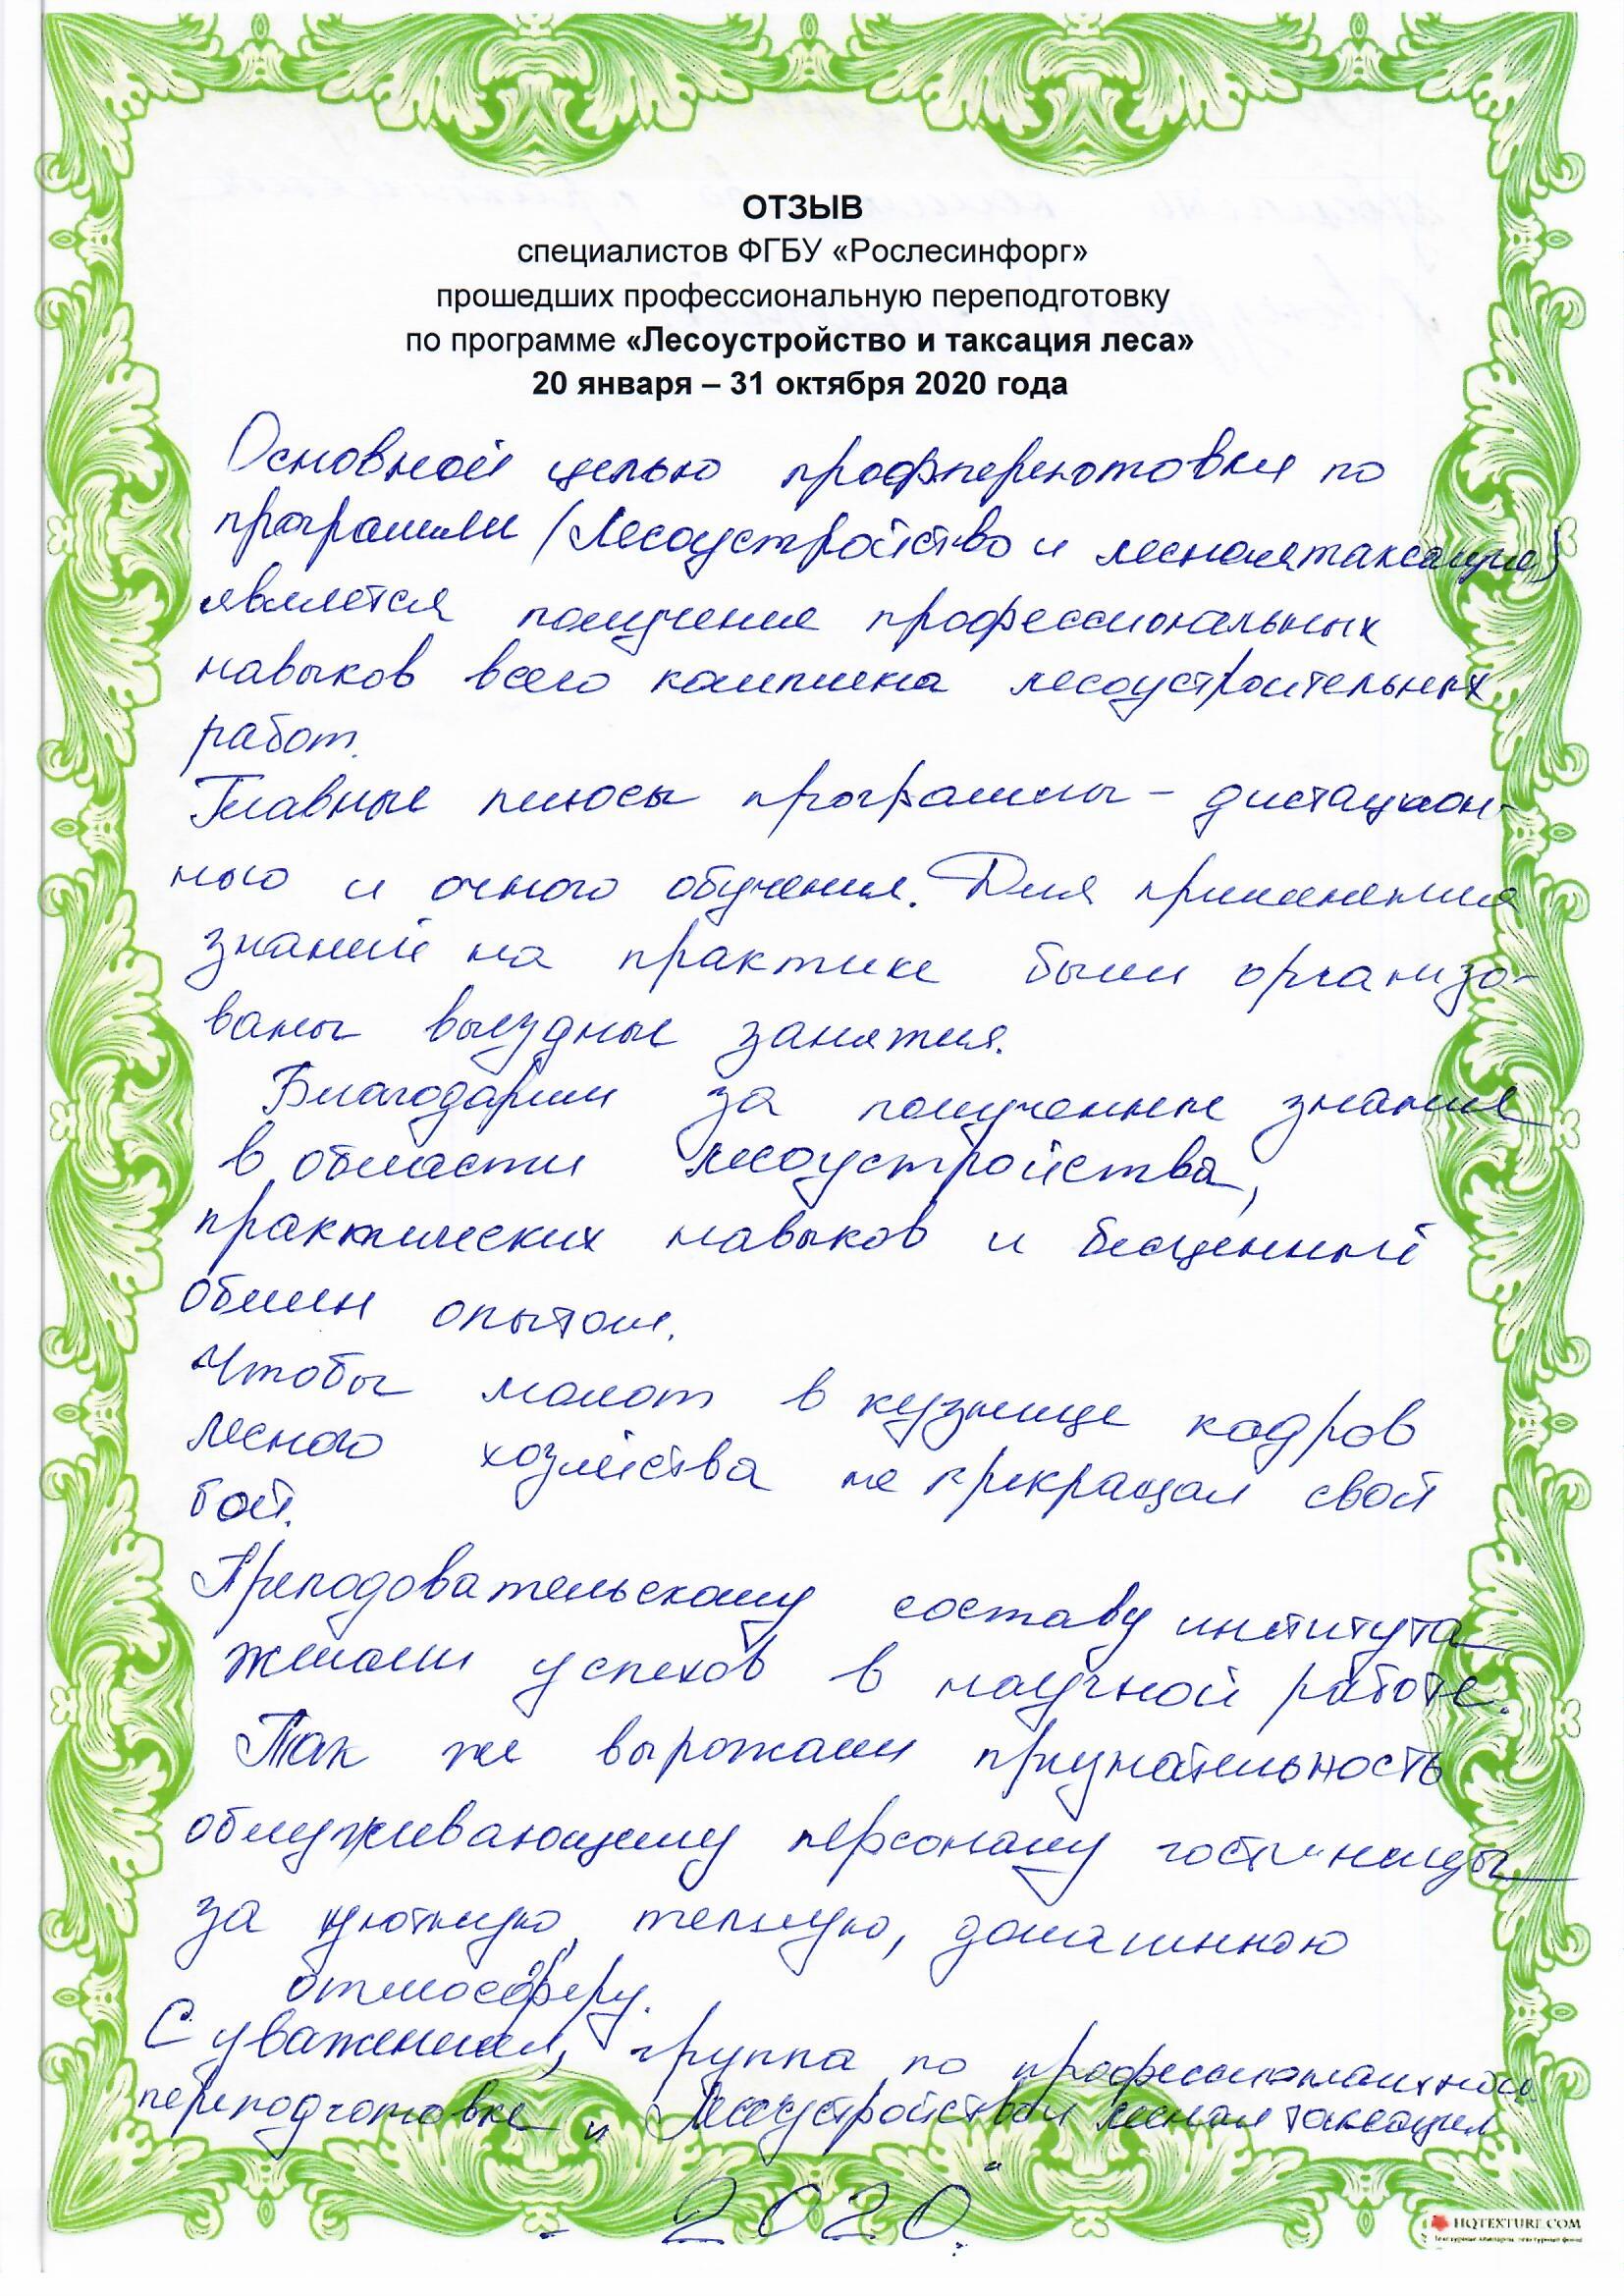 ОТЗЫВ
специалистов ФГБУ «Рослесинфорг»
прошедших профессиональную переподготовку
по программе «Лесоустройство и таксация леса»
20 января – 31 октября 2020 года
Основной целью профпереготовки по
программы (Лесоустройство и лесная таксация)
является получение профессиональных
навыков всего комплекса лесоустроительных
работ.
Главные плюсы программы – дистацион-
ного и очного обучения. Для применения
знаний на практике были организо-
ваны выездные занятия.
Благодарим за полученные знания
в области лесоустройства,
практических навыков и бесценный
обмен опытом.
Чтобы молот в кузнице кадров
лесного хозяйства не прекращал свой
бой.
Преподовательскому составу института
желаем успехов в научной работе.
Так же выражаем признательность
обслуживающему персоналу гостиницы
за уютную, теплую, домашнюю
атмосферу.
С уважением, группа по профессиональной
переподготовке "Лесоустройство и лесная таксация
2020"
HQTEXTURE.COM